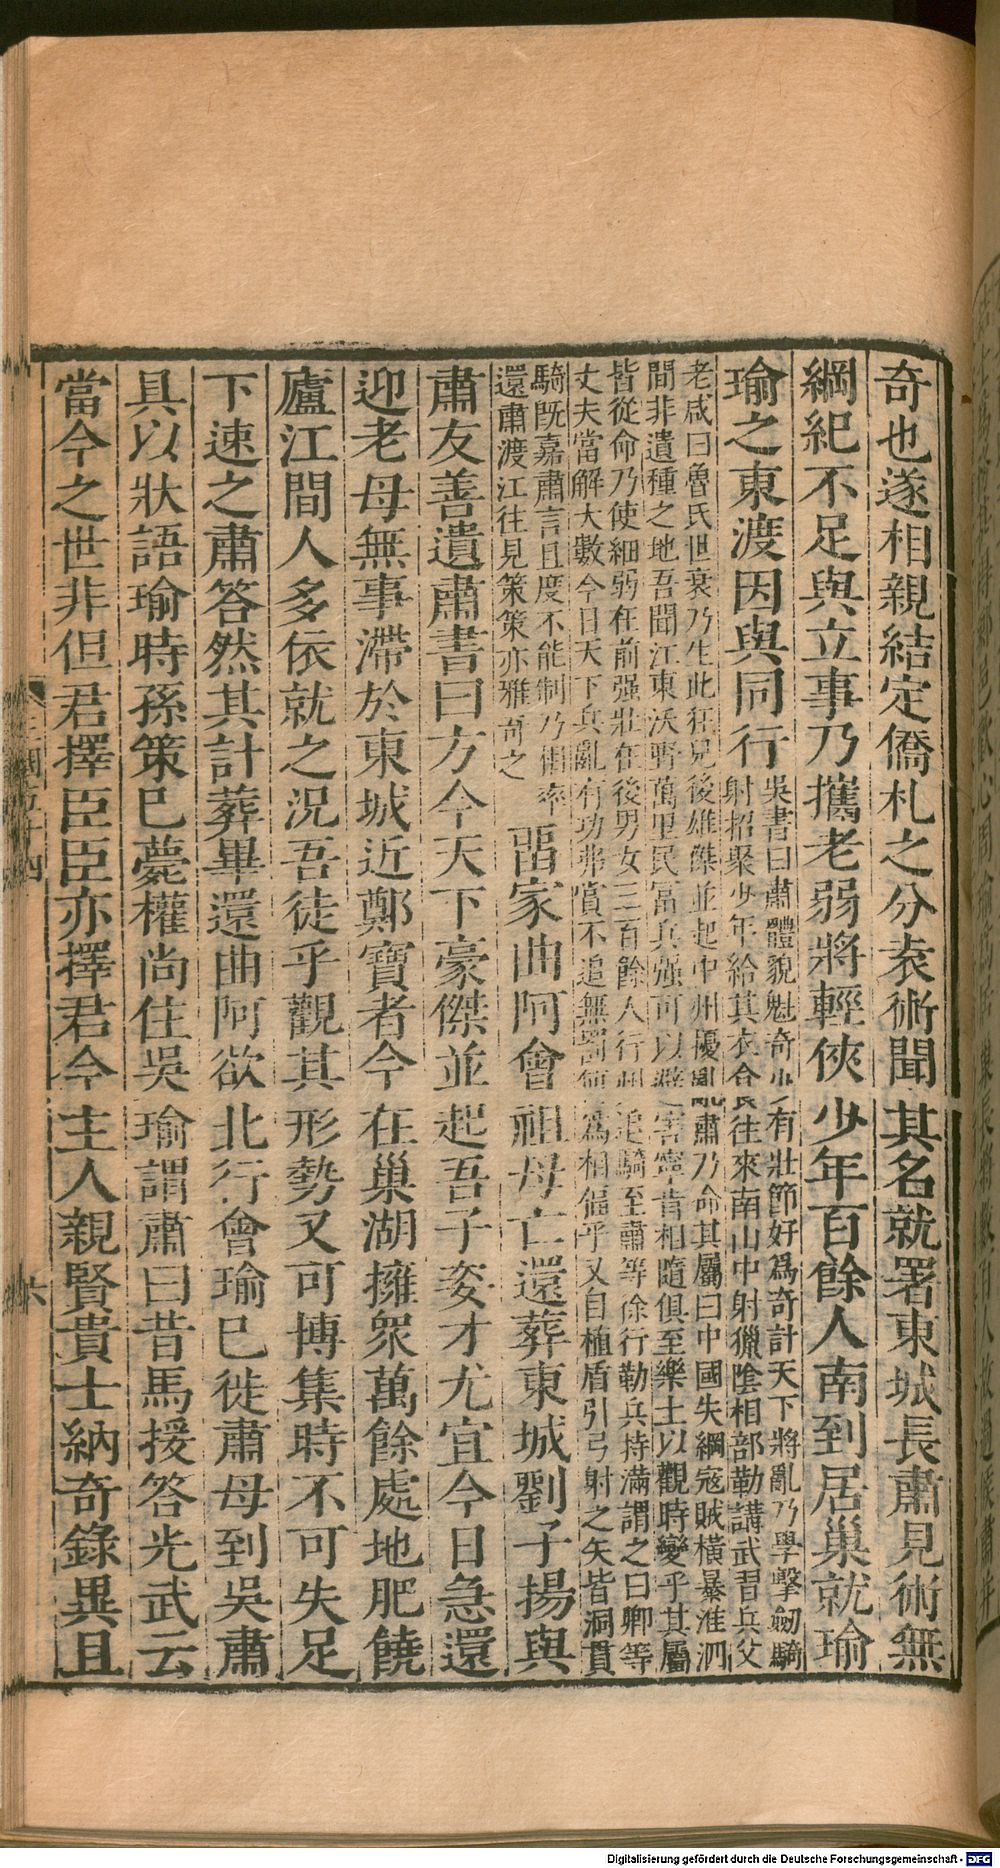 奇也遂相親結定僑札之分袁術聞其名就署東城長肅見術無
綱紀不足與立事乃攜老弱將輕俠少年百餘人南到居巢就瑜
瑜之東渡因與同行
吳書曰肅體貌魁奇少有壯節好爲奇計天下將亂乃學擊劒騎
射招聚少年給其衣食往來南山中射獵陰相部勒講武習兵父
老咸曰魯氏世衰乃生此狂兒後雄傑並起中州擾亂肅乃命其屬曰中國失綱寇賊橫暴淮泗
間非遺種之地吾聞江東沃野萬里民富兵强可以避害寧肯相隨俱至樂土以觀時變乎其屬
皆從命乃使細弱在前强壯在後男女三百餘人行州追騎至肅等徐行勒兵持滿謂之曰卿等
丈夫當解大數今日天下兵亂有功弗賞不追無罰何爲相偪乎又自植盾引弓射之矢皆洞貫
騎既嘉肅言且度不能制乃相率
還肅渡江往見策策亦雅奇之
畱家曲阿會祖母亡還葬東城劉子揚與
肅友善遺肅書曰方今天下豪傑並起吾子姿才尤宜今日急還
迎老母無事滯於東城近鄭寶者今在巢湖擁衆萬餘處地肥饒
廬江間人多依就之況吾徒乎觀其形勢又可博集時不可失足
下速之肅答然其計葬畢還曲阿欲北行會瑜已徙肅母到吳肅
具以狀語瑜時孫策已薨權尚住吳瑜謂肅曰昔馬援答光武云
當今之世非但君擇臣臣亦擇君今主人親賢貴士納奇錄異且
三國志五十四
六
Digitalisierung gefördert durch die Deutsche Forschungsgemeinschaft - DFG